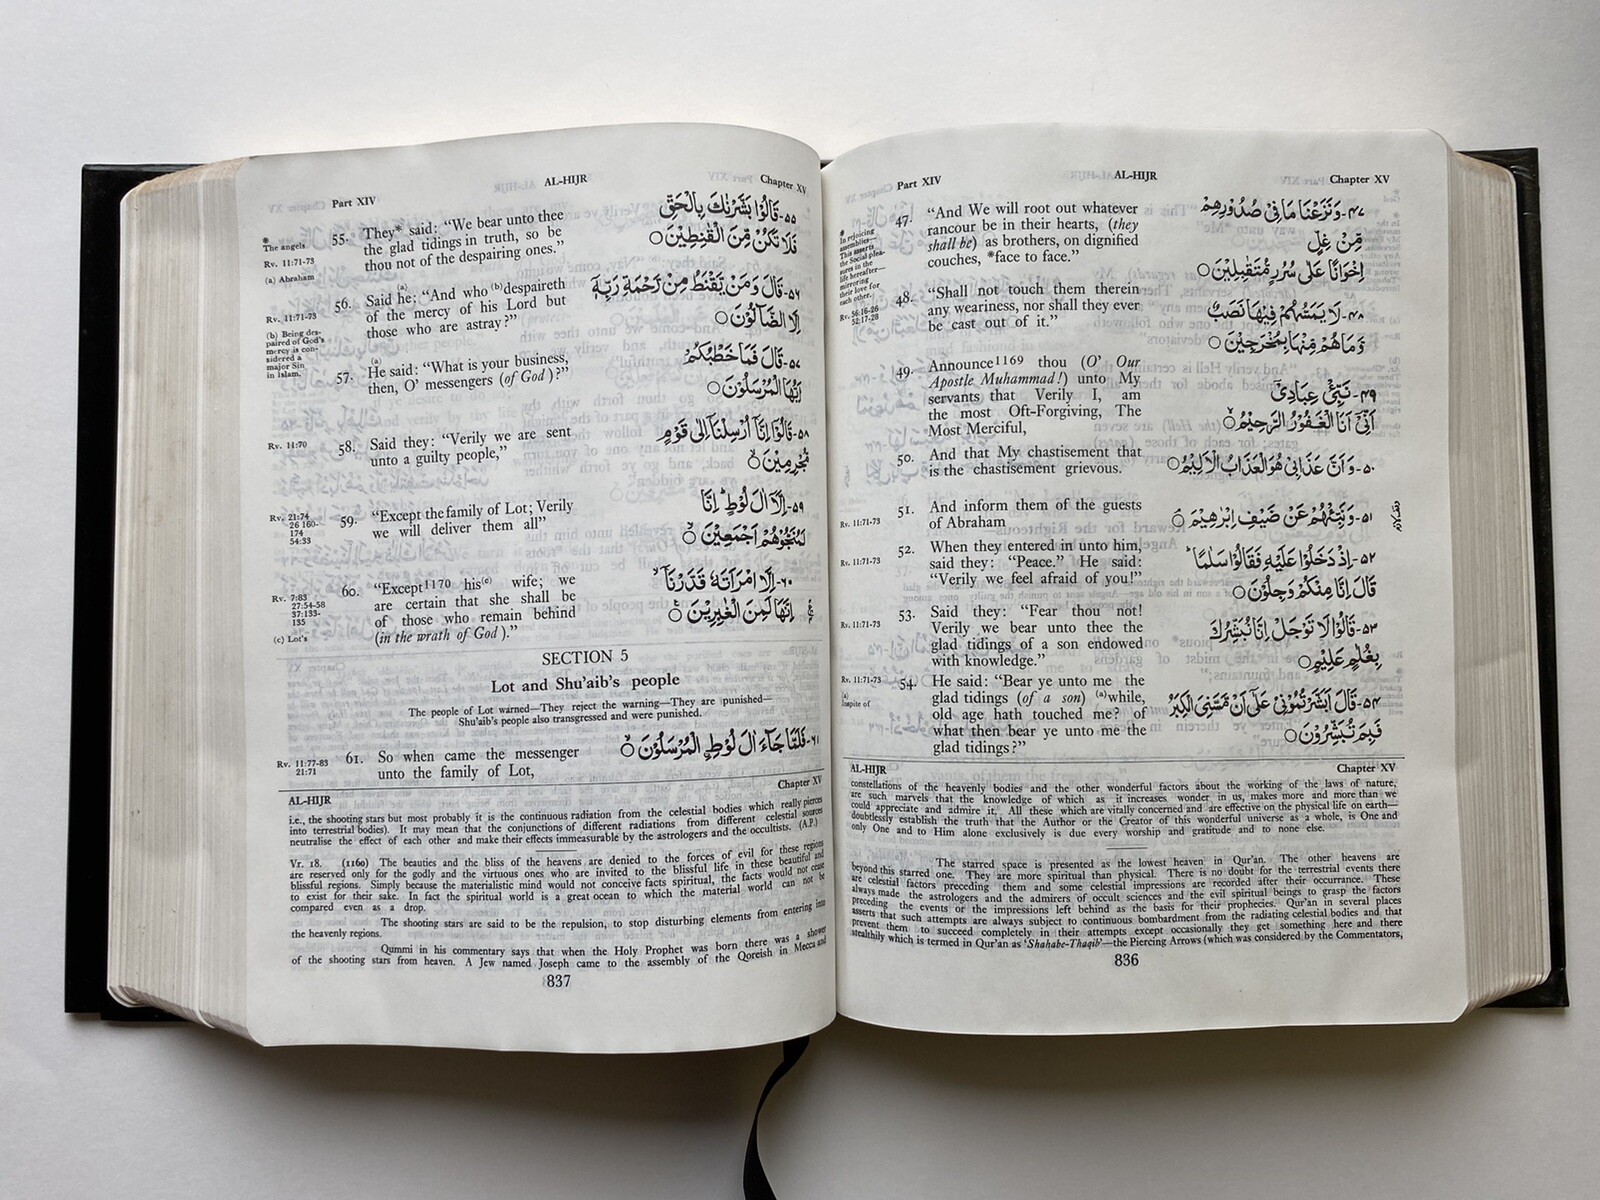 Part XIV
AL-HIJR
Chapter XV
47. “And We will root out whatever
rancour be in their hearts, (they
shall be) as brothers, on dignified
couches, *face to face.”
٤٧-وَنَزَعْنَا مَا فِىْ صُدُوْرِهِمْ
مِّنْ غِلٍّ
اِخْوَانًا عَلٰى سُرُرٍ مُّتَقٰبِلِيْنَ○
*
In rejoicing
assemblies—
This asserts
the Social plea-
sures in the
life hereafter—
mirroring
their love for
each other.
Rv. 56:16-26
52:17-28
48. “Shall not touch them therein
any weariness, nor shall they ever
be cast out of it.”
٤٨-لَا يَمَسُّهُمْ فِيْهَا نَصَبٌ
وَّمَا هُمْ مِّنْهَا بِمُخْرَجِيْنَ○
49. Announce1169 thou (O’ Our
Apostle Muhammad!) unto My
servants that Verily I, am
the most Oft-Forgiving, The
Most Merciful,
٤٩-نَبِّئْ عِبَادِىْٓ
اَنِّىْٓ اَنَا الْغَفُوْرُ الرَّحِيْمُ○
50. And that My chastisement that
is the chastisement grievous.
٥٠-وَاَنَّ عَذَابِىْ هُوَ الْعَذَابُ الْاَلِيْمُ○
Rv. 11:71-73
51. And inform them of the guests
of Abraham
٥١-وَنَبِّئْهُمْ عَنْ ضَيْفِ اِبْرٰهِيْمَ○
Rv. 11:71-73
52. When they entered in unto him,
said they: “Peace.” He said:
“Verily we feel afraid of you!”
٥٢-اِذْ دَخَلُوْا عَلَيْهِ فَقَالُوْا سَلٰمًا
قَالَ اِنَّا مِنْكُمْ وَجِلُوْنَ○
Rv. 11:71-73
53. Said they: “Fear thou not!
Verily we bear unto thee the
glad tidings of a son endowed
with knowledge.”
٥٣-قَالُوْا لَا تَوْجَلْ اِنَّا نُبَشِّرُكَ
بِغُلٰمٍ عَلِيْمٍ○
Rv. 11:71-73
(a)
Inspite of
54. He said: “Bear ye unto me the
glad tidings (of a son) (a)while,
old age hath touched me? of
what then bear ye unto me the
glad tidings?”
٥٤-قَالَ اَبَشَّرْتُمُوْنِىْ عَلٰٓى اَنْ مَّسَّنِىَ الْكِبَرُ
فَبِمَ تُبَشِّرُوْنَ○
AL-HIJR
Chapter XV
constellations of the heavenly bodies and the other wonderful factors about the working of the laws of nature,
are such marvels that the knowledge of which as it increases wonder in us, makes more and more than we
could appreciate and admire it. All these which are vitally concerned and are effective on the physical life on earth—
doubtlessly establish the truth that the Author or the Creator of this wonderful universe as a whole, is One and
only One and to Him alone exclusively is due every worship and gratitude and to none else.
The starred space is presented as the lowest heaven in Qur’an. The other heavens are
beyond this starred one. They are more spiritual than physical. There is no doubt for the terrestrial events there
are celestial factors preceding them and some celestial impressions are recorded after their occurrance. These
always made the astrologers and the admirers of occult sciences and the evil spiritual beings to grasp the factors
preceding the events or the impressions left behind as the basis for their prophecies. Qur’an in several places
asserts that such attempts are always subject to continuous bombardment from the radiating celestial bodies and that
prevent them to succeed completely in their attempts except occasionally they get something here and there
stealthily which is termed in Qur’an as ‘Shahabe-Thaqib’—the Piercing Arrows (which was considered by the Commentators,
836
Part XIV
AL-HIJR
Chapter XV
*
The angels
Rv. 11:71-73
(a) Abraham
55. They* said: “We bear unto thee
the glad tidings in truth, so be
thou not of the despairing ones.”
٥٥-قَالُوْا بَشَّرْنٰكَ بِالْحَقِّ
فَلَا تَكُنْ مِّنَ الْقٰنِطِيْنَ○
Rv. 11:71-73
(b) Being des-
paired of God’s
mercy is con-
sidered a
major Sin
in Islam.
56. Said (a)he: “And who (b)despaireth
of the mercy of his Lord but
those who are astray?”
٥٦-قَالَ وَمَنْ يَّقْنَطُ مِنْ رَّحْمَةِ رَبِّهٖٓ
اِلَّا الضَّآلُّوْنَ○
57. (a)He said: “What is your business,
then, O’ messengers (of God)?”
٥٧-قَالَ فَمَا خَطْبُكُمْ
اَيُّهَا الْمُرْسَلُوْنَ○
Rv. 11:70
58. Said they: “Verily we are sent
unto a guilty people,”
٥٨-قَالُوْٓا اِنَّآ اُرْسِلْنَآ اِلٰى قَوْمٍ
مُّجْرِمِيْنَ○
Rv. 21:74
26 160-
174
54:33
59. “Except the family of Lot; Verily
we will deliver them all”
٥٩-اِلَّآ اٰلَ لُوْطٍ اِنَّا
لَمُنَجُّوْهُمْ اَجْمَعِيْنَ○
Rv. 7:83
27:54-58
37:133-
135
(c) Lot’s
60. “Except1170 his(c) wife; we
are certain that she shall be
of those who remain behind
(in the wrath of God).”
٦٠-اِلَّا امْرَاَتَهٗ قَدَّرْنَآ
اِنَّهَا لَمِنَ الْغٰبِرِيْنَ○
SECTION 5
Lot and Shu’aib’s people
The people of Lot warned—They reject the warning—They are punished—
Shu’aib’s people also transgressed and were punished.
Rv. 11:77-83
21:71
61. So when came the messenger
unto the family of Lot,
٦١-فَلَمَّا جَآءَ اٰلَ لُوْطِ الْمُرْسَلُوْنَ○
AL-HIJR
Chapter XV
i.e., the shooting stars but most probably it is the continuous radiation from the celestial bodies which really pierces
into terrestrial bodies). It may mean that the conjunctions of different radiations from different celestial sources
neutralise the effect of each other and make their effects immeasurable by the astrologers and the occultists. (A.P.)
Vr. 18. (1160) The beauties and the bliss of the heavens are denied to the forces of evil for these regions
are reserved only for the godly and the virtuous ones who are invited to the blissful life in these beautiful and
blissful regions. Simply because the materialistic mind would not conceive facts spiritual, the facts would not cease
to exist for their sake. In fact the spiritual world is a great ocean to which the material world can not be
compared even as a drop.
The shooting stars are said to be the repulsion, to stop disturbing elements from entering into
the heavenly regions.
Qummi in his commentary says that when the Holy Prophet was born there was a shower
of the shooting stars from heaven. A Jew named Joseph came to the assembly of the Qoreish in Mecca and
837